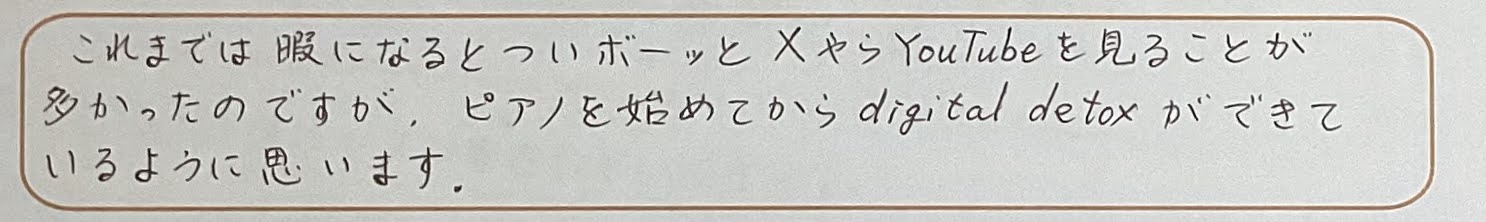 これまでは暇になるとついボーッとXやらYouTubeを見ることが
多かったのですが, ピアノを始めてからdigital detoxができて
いるように思います.